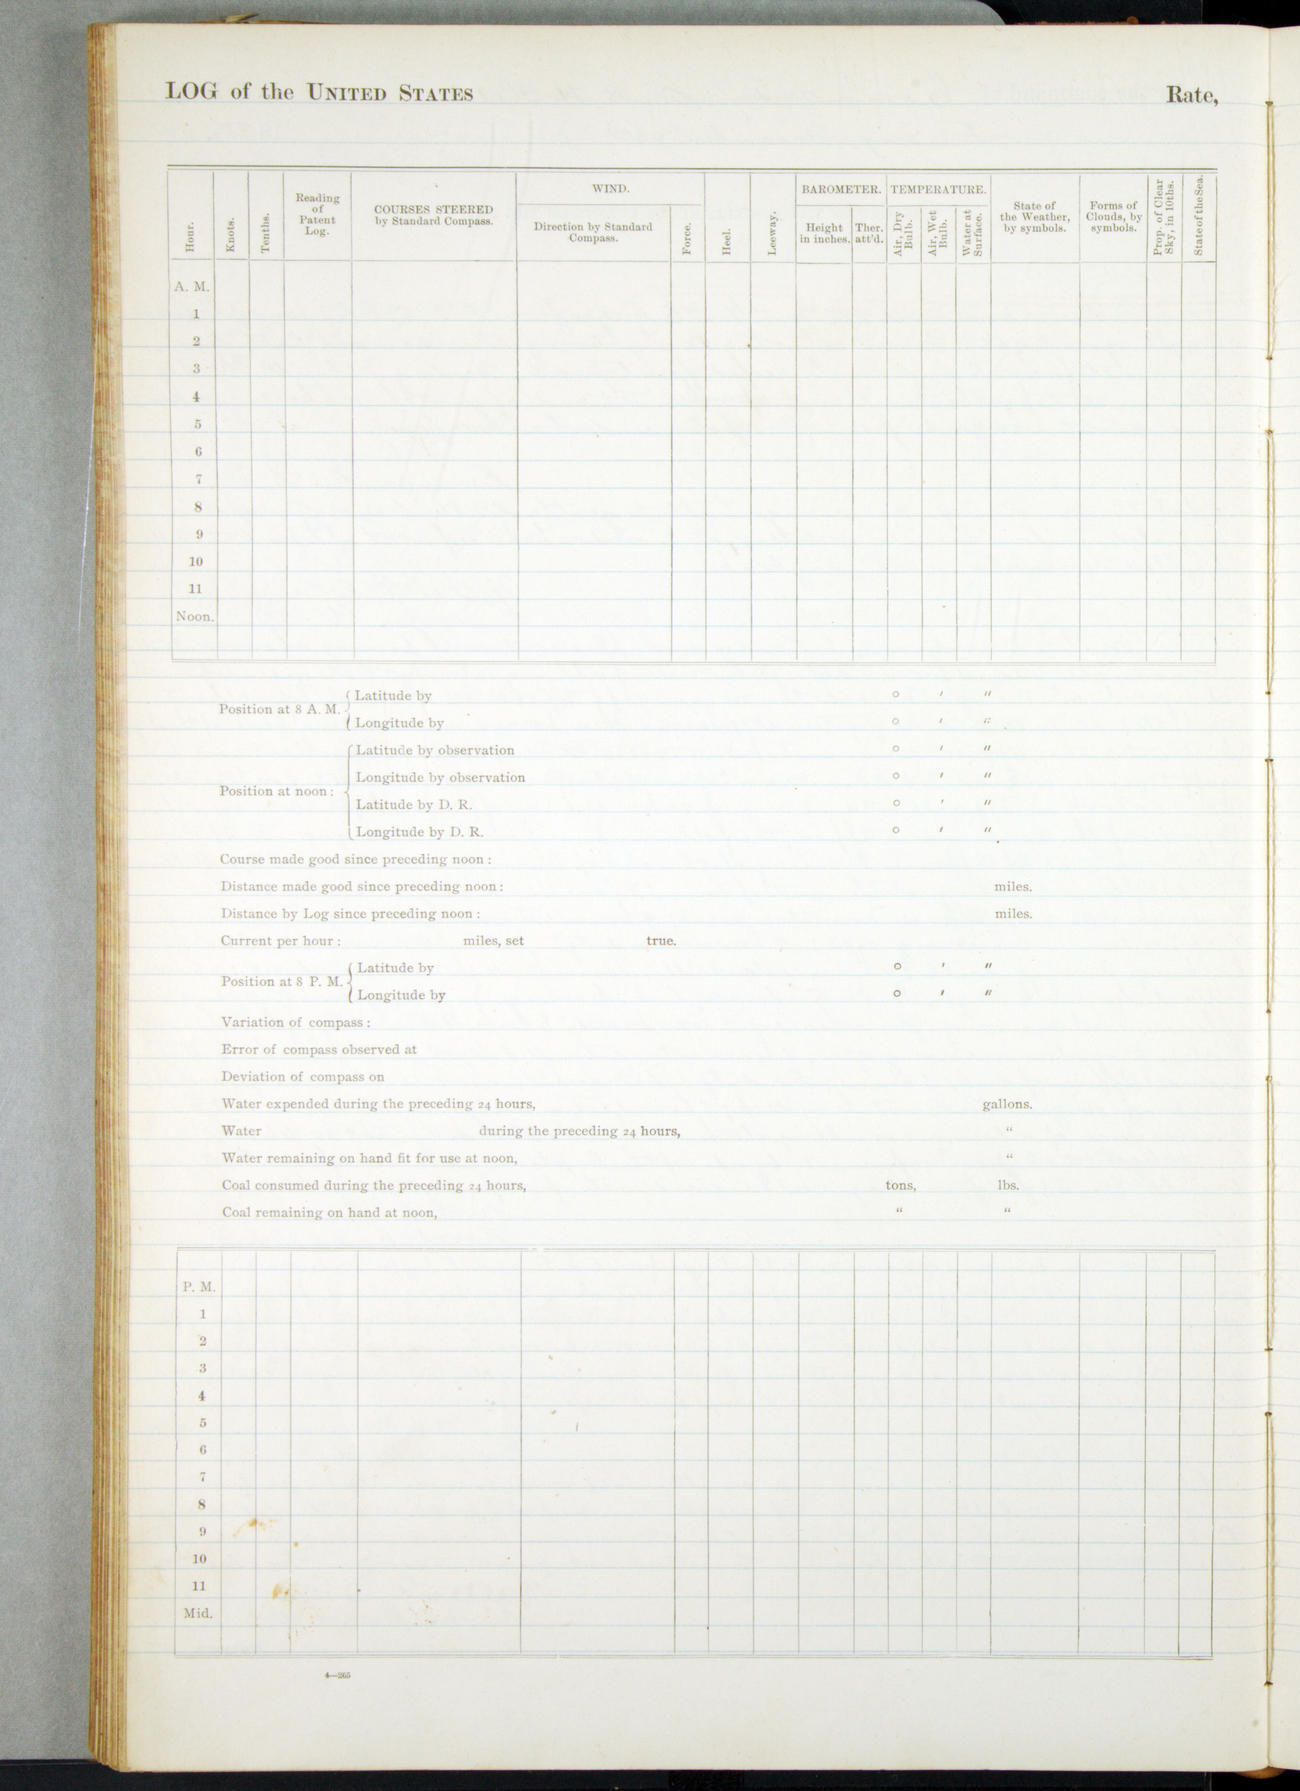 LOG of the UNITED STATES Rate,
Hour. Knots. Tenths. Reading of Patent Log. COURSES STEERED by Standard Compass. WIND. Direction by Standard Compass. Force. Heel. Leeway. BAROMETER. Height in inches. Ther. att'd. TEMPERATURE. Air, Dry Bulb. Air, Wet Bulb. Water at Surface. State of the Weather, by symbols. Forms of Clouds, by symbols. Prop. of Clear Sky, in 10ths. State of the Sea.
A. M.
1
2
3
4
5
6
7
8
9
10
11
Noon.
Position at 8 A. M. { Latitude by ° ′ ″
Longitude by ° ′ ″
Position at noon : { Latitude by observation ° ′ ″
Longitude by observation ° ′ ″
Latitude by D. R. ° ′ ″
Longitude by D. R. ° ′ ″
Course made good since preceding noon :
Distance made good since preceding noon : miles.
Distance by Log since preceding noon : miles.
Current per hour : miles, set true.
Position at 8 P. M. { Latitude by ° ′ ″
Longitude by ° ′ ″
Variation of compass :
Error of compass observed at
Deviation of compass on
Water expended during the preceding 24 hours, gallons.
Water during the preceding 24 hours, “
Water remaining on hand fit for use at noon, “
Coal consumed during the preceding 24 hours, tons, lbs.
Coal remaining on hand at noon, “ “
P. M.
1
2
3
4
5
6
7
8
9
10
11
Mid.
4—265